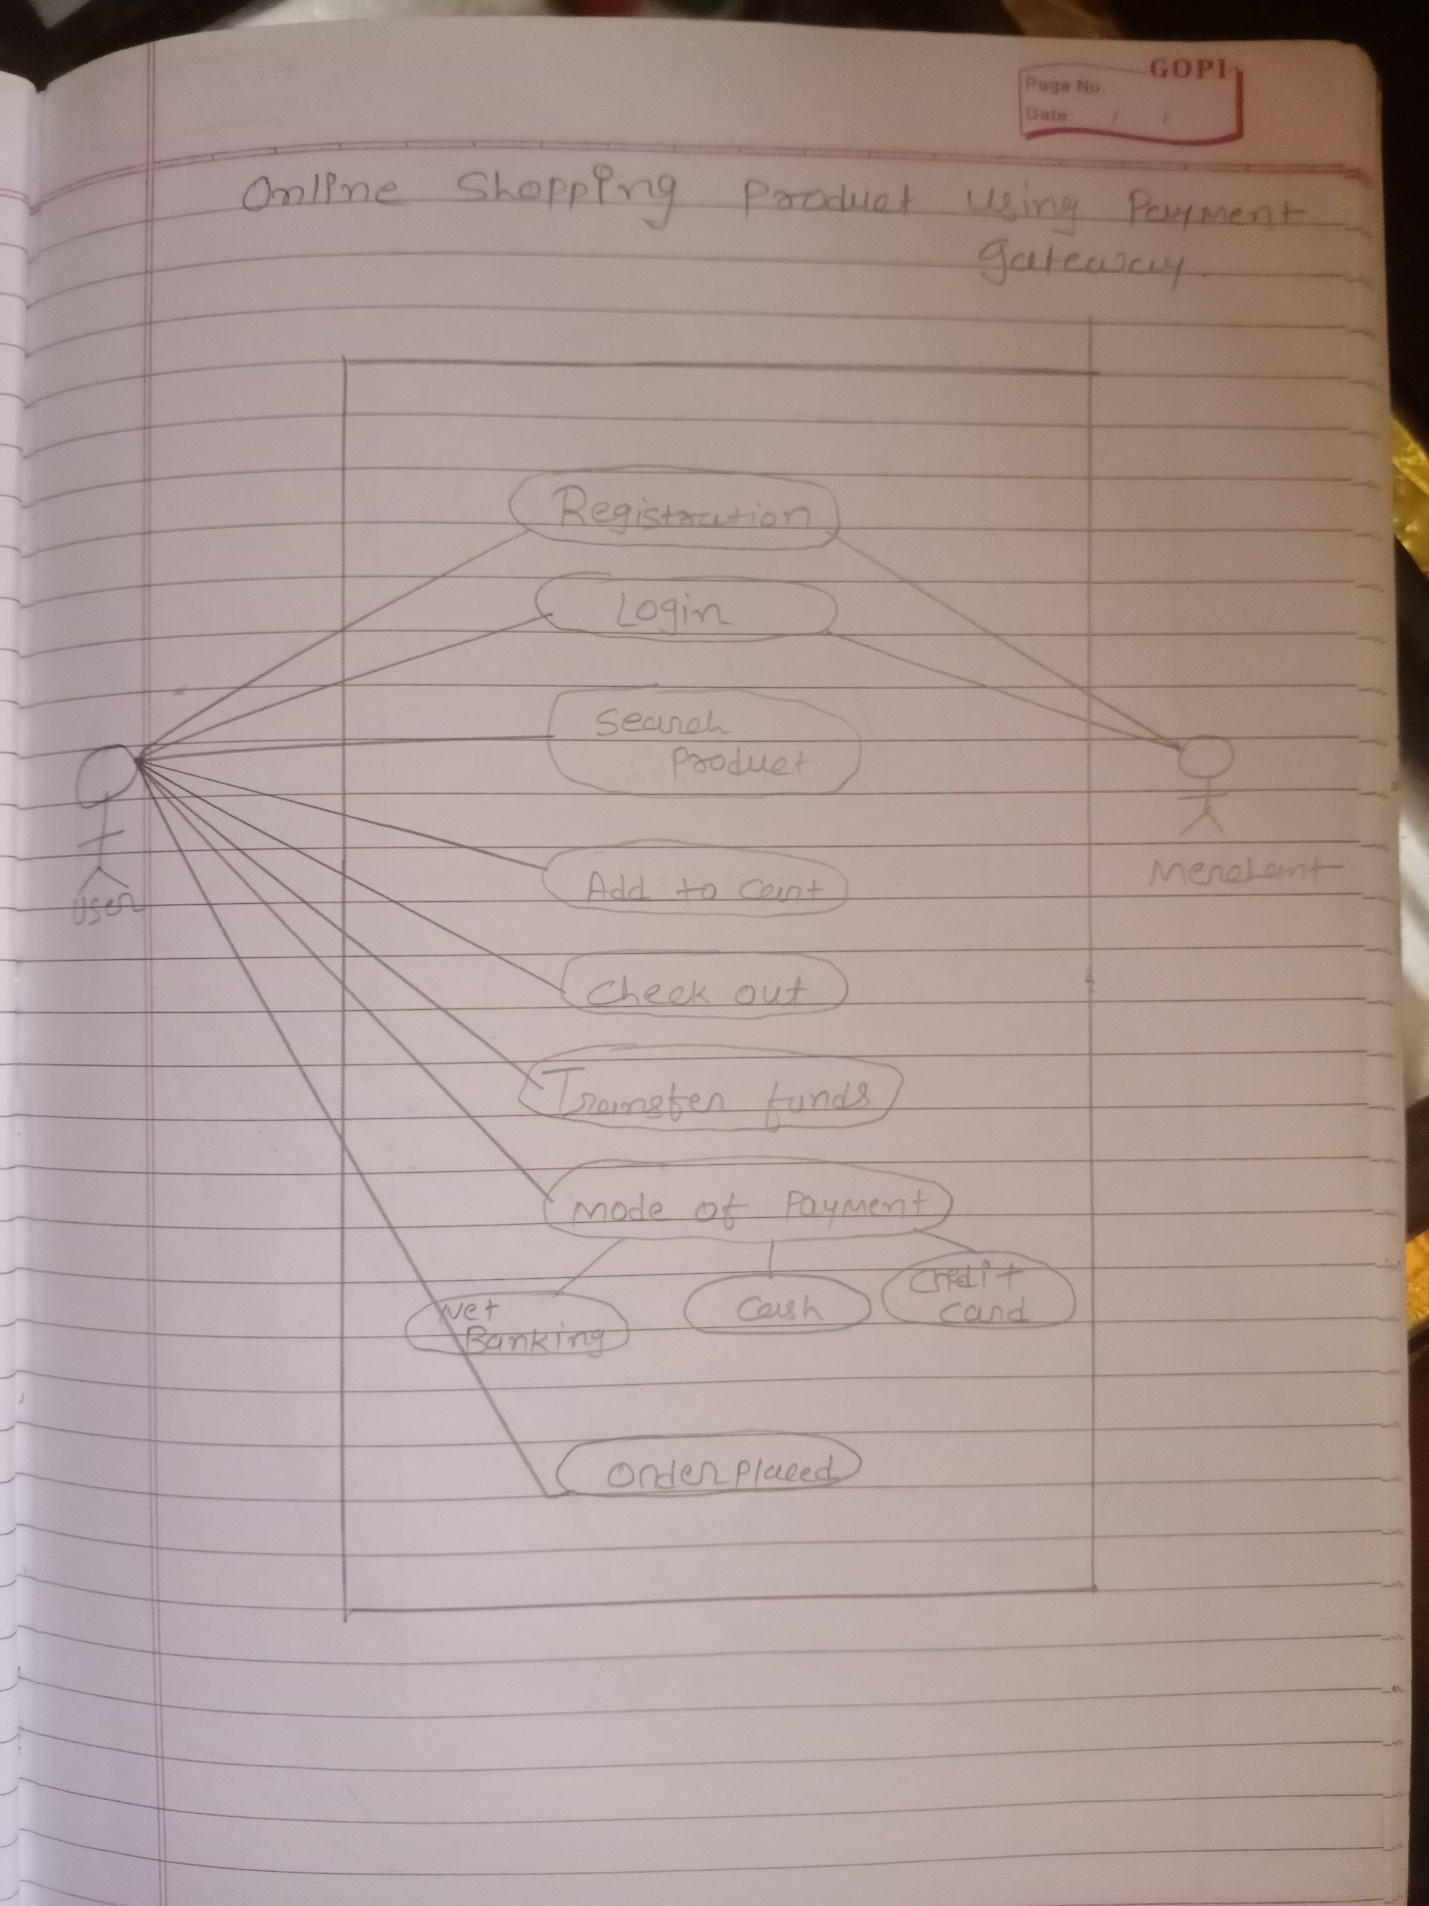 GOPI
Page No.
Date / /
Online Shopping Product using Payment
gateway.
Registration
Login
Search
Product
Add to Cart
Check out
Transfer funds
Mode of Payment
Net
Banking
Cash
Credit
Card
Order placed
User
Merchant